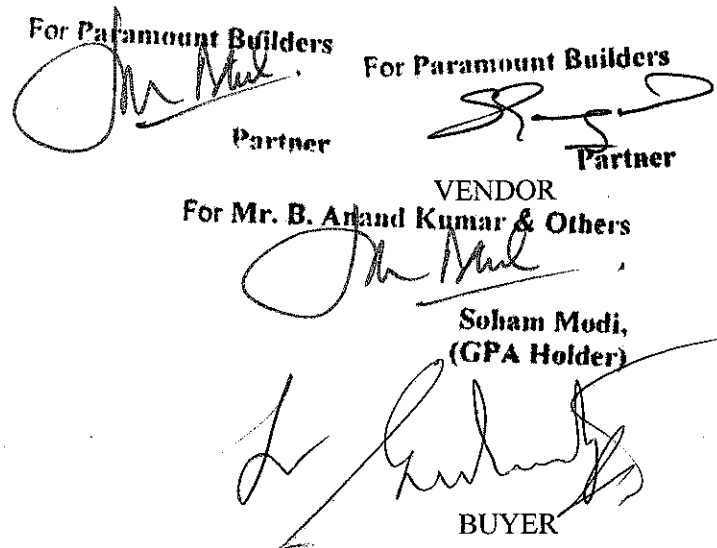 For Paramount Builders
For Paramount Builders
Partner
Partner
VENDOR
For Mr. B. Anand Kumar & Others
Soham Modi,
(GPA Holder)
BUYER